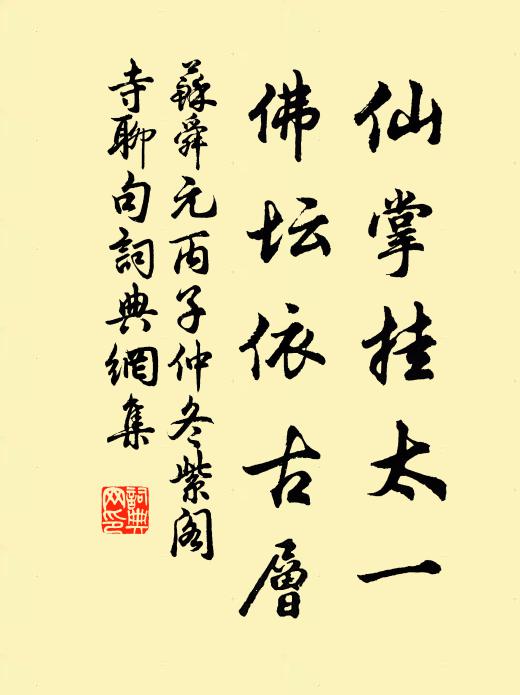 仙掌挂太一
佛坛依古層
蘇舜元丙子仲冬紫阁
寺聊句詞典網集
詞典
网印